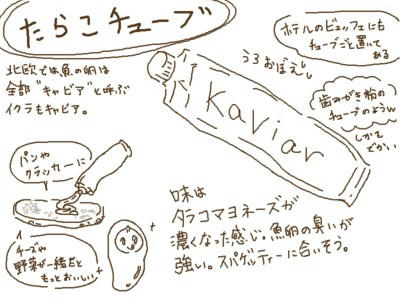 たらこチューブ
北欧では魚の卵は
全部"キャビア"と呼ぶ
イクラもキャビア。
Kaviar
うろおぼえ
ホテルのビュッフェにも
チューブごと置いて
ある
歯みがき粉の
チューブのようw
しかて
でかい
パンや
クラッカーに
チーズや
野菜が一緒だと
もっとおいしい
味は
タラコマヨネーズが
濃くなった感じ。魚卵の臭いが
強い。スパゲッティーに合いそう。